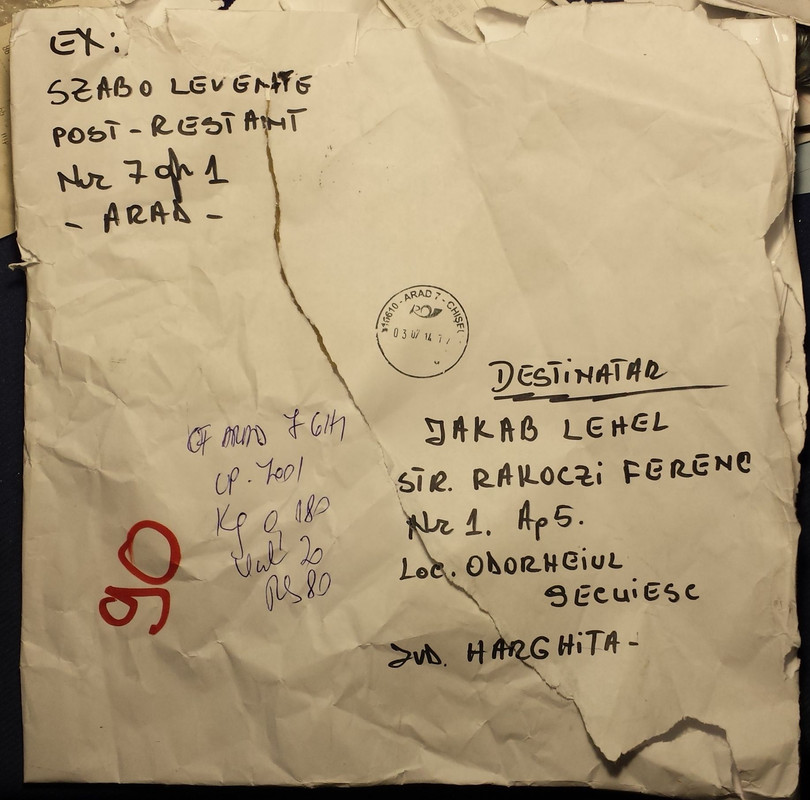 EX:
SZABO LEVENTE
POST-RESTANT
Nr 7 of 1
- ARAD -
ARAD 7 - CHIȘ
DESTINATAR
JAKAB LEHEL
STR. RAKOCZI FERENC
Nr 1. Ap 5.
Loc. ODORHEIUL
SECUIESC
JUD. HARGHITA -
ARAD 7
CP. 7001
Kg 0,180
Val 20
RS 80
90